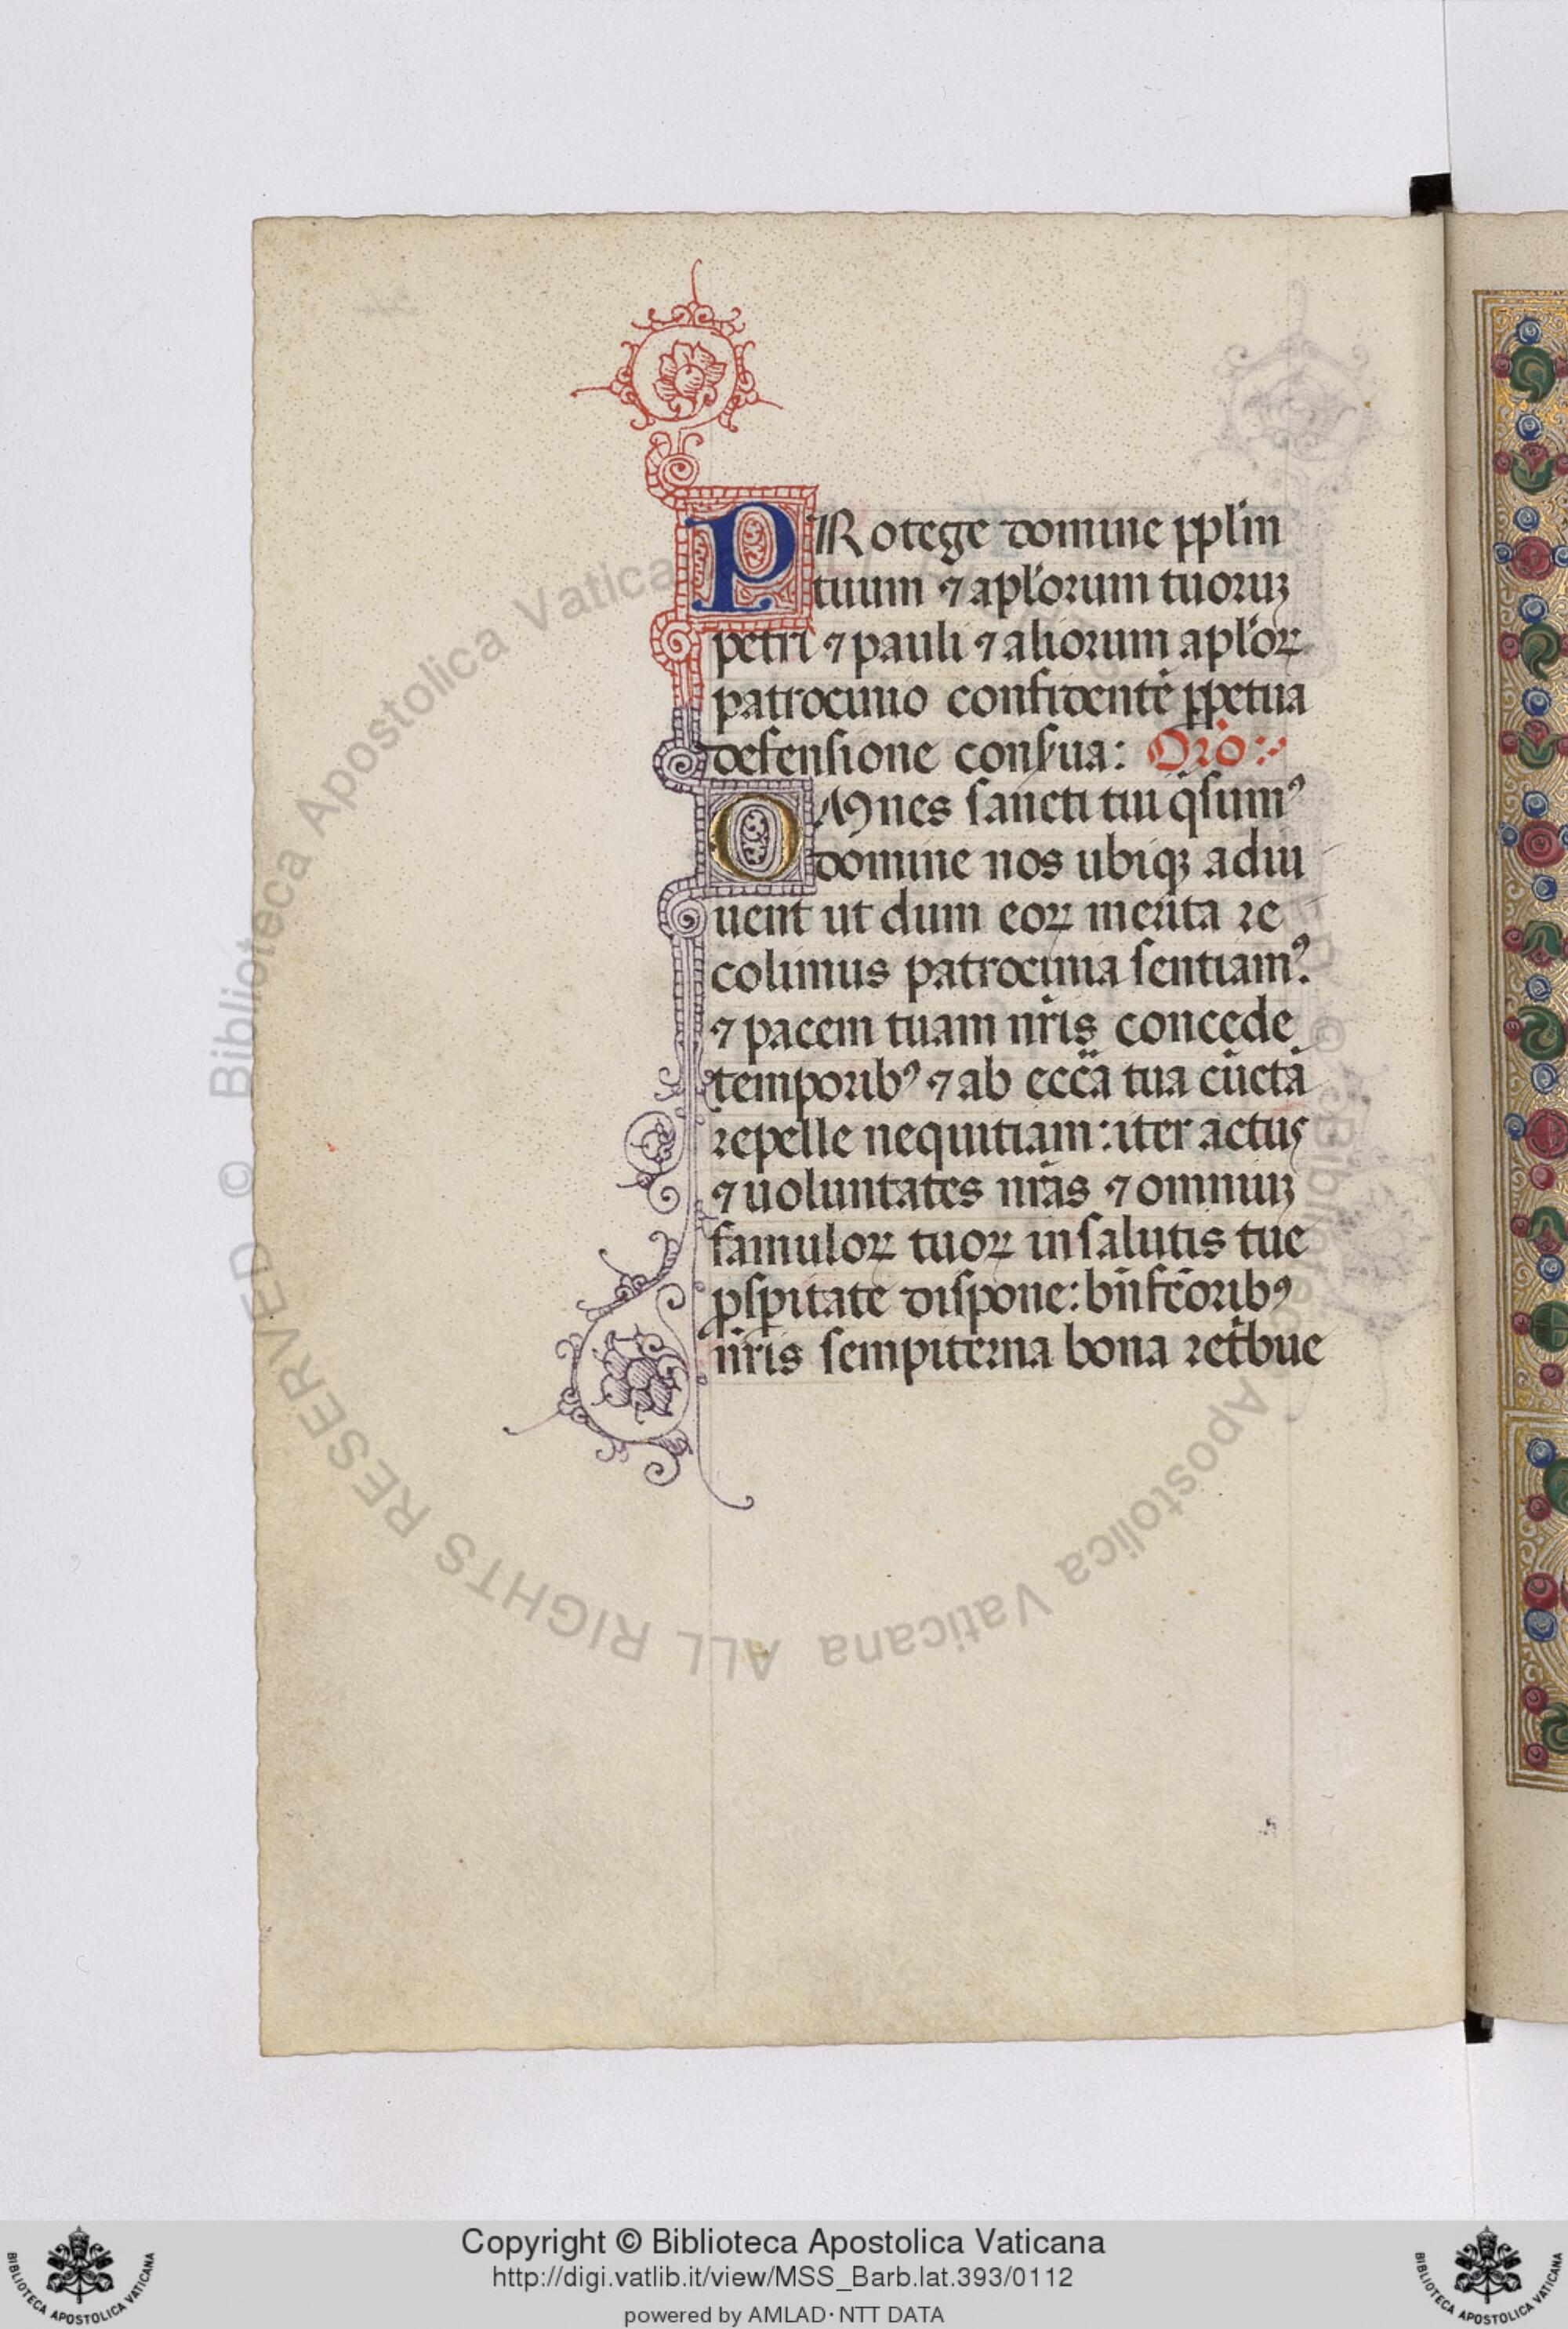 PRotege domine pplm̅
tuum ⁊ apl'orum tuoruʒ
petri ⁊ pauli ⁊ aliorum apl'oꝝ
patrocinio confidente̅ ꝑpetua
defensione conẜua: Or̅o:
OMnes sancti tui q̅sumꝰ
domine nos ubiqꝫ adiu
uent ut dum eoꝝ merita re
colimus patrocinia sentiamꝰ.
⁊ pacem tuam nr̅is concede
temporibꝰ ⁊ ab ecc̅a tua cu̅cta̅
repelle nequitiam: iter actus
⁊ uoluntates nr̅as ⁊ omniuʒ
famuloꝝ tuoꝝ in salutis tue
ꝓsꝑitate dispone: bn̅fc̅oribꝰ
nr̅is sempiterna bona retͥbue
© Biblioteca Apostolica Vaticana ALL RIGHTS RESERVED
Copyright © Biblioteca Apostolica Vaticana
http://digi.vatlib.it/view/MSS_Barb.lat.393/0112
powered by AMLAD·NTT DATA
BIBLIOTECA APOSTOLICA VATICANA
BIBLIOTECA APOSTOLICA VATICANA